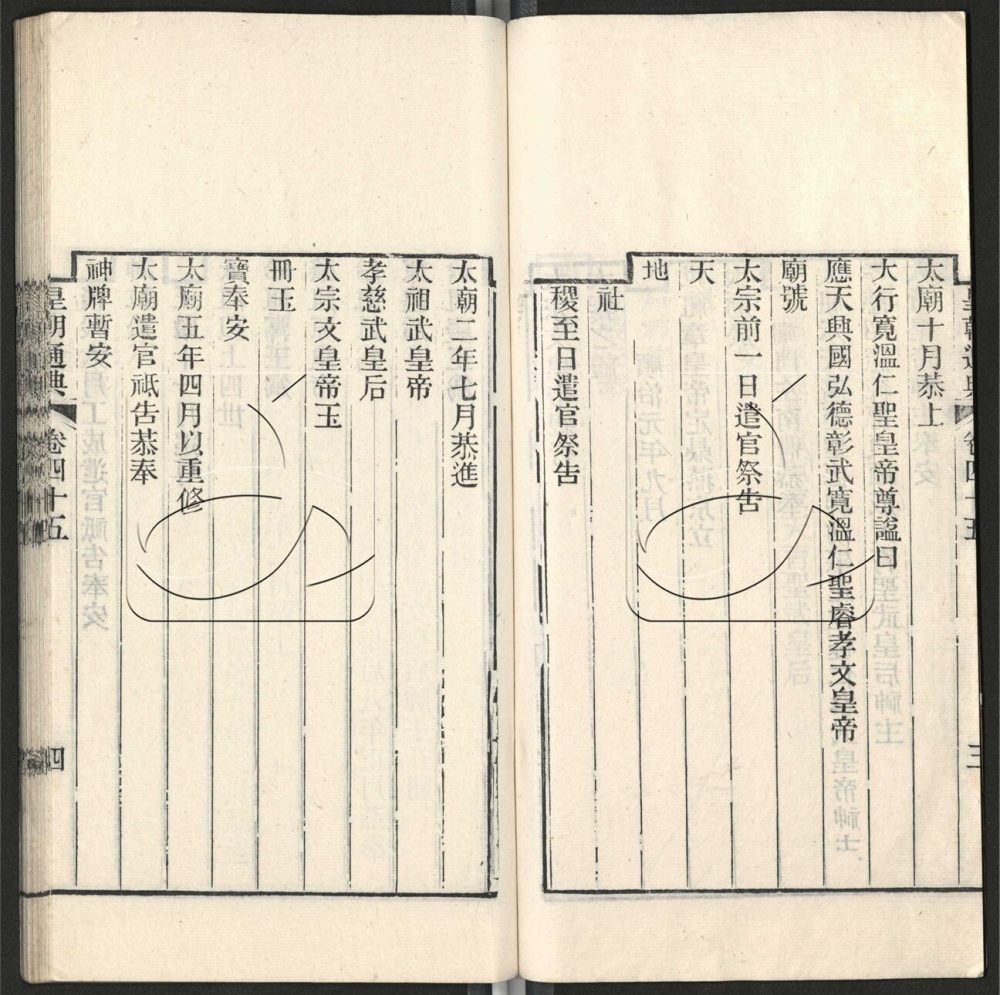 太廟十月恭上
大行寬溫仁聖皇帝尊諡曰
應天興國弘德彰武寬溫仁聖睿孝文皇帝
廟號
太宗前一日遣官祭告
天
地
社
稷至日遣官祭告
太廟二年七月恭進
太祖武皇帝
孝慈武皇后
太宗文皇帝玉
冊玉
寶奉安
太廟五年四月以重修
太廟遣官祗告恭奉
神牌暫安
皇朝通典
卷四十五
四